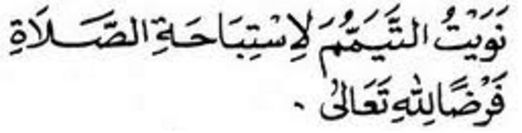 نَوَيْتُ التَّيَمُّمَ لِاسْتِبَاحَةِ الصَّلَاةِ
فَرْضًا لِلّٰهِ تَعَالٰى .